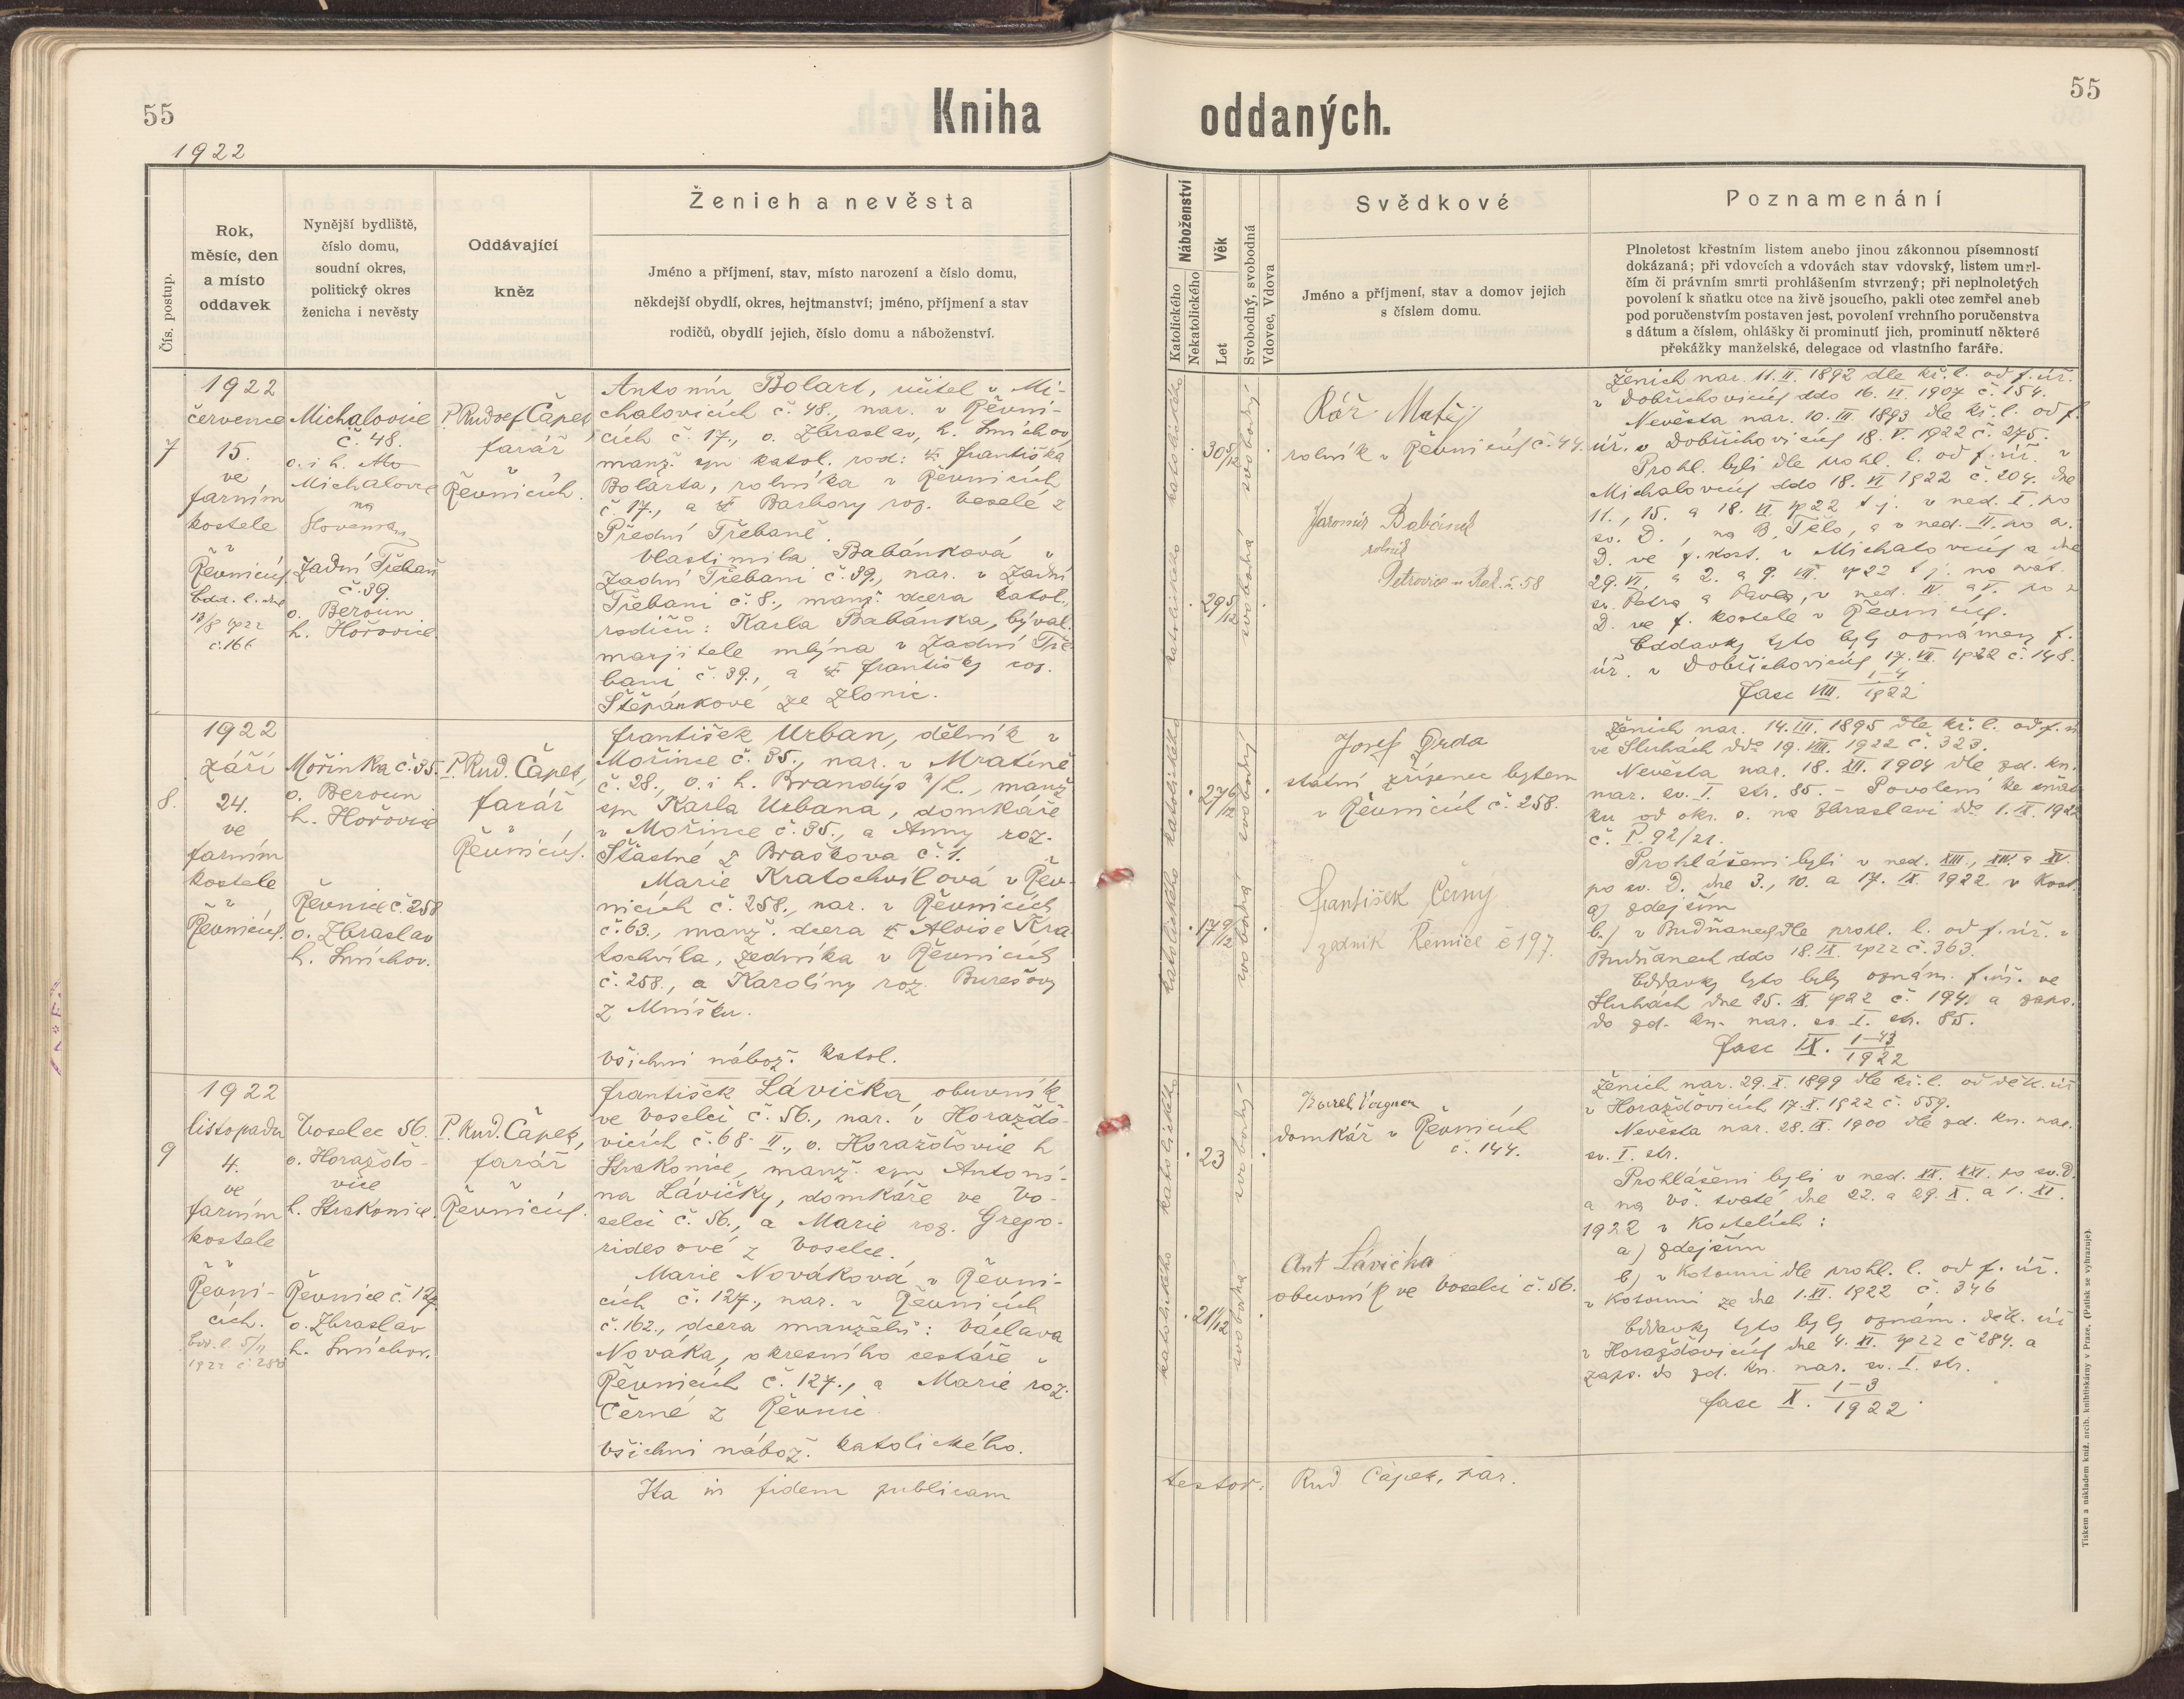 55
Kniha
oddaných.
55
1922
Čís. postup.
Rok,
měsíc, den
a místo
oddavek
Nynější bydliště,
číslo domu,
soudní okres,
politický okres
ženicha i nevěsty
Oddávající
kněz
Ženich a nevěsta
Jméno a příjmení, stav, místo narození a číslo domu,
někdejší obydlí, okres, hejtmanství; jméno, příjmení a stav
rodičů, obydlí jejich, číslo domu a náboženství.
Náboženství
Katolického
Nekatolického
Věk
Let
Svobodný, svobodná
Vdovec, Vdova
Svědkové
Jméno a příjmení, stav a domov jejich
s číslem domu.
Poznamenání
Plnoletost křestním listem anebo jinou zákonnou písemností
dokázaná; při vdovcích a vdovách stav vdovský, listem umrl-
čím či právním smrti prohlášením stvrzený; při neplnoletých
povolení k sňatku otce na živě jsoucího, pakli otec zemřel aneb
pod poručenstvím postaven jest, povolení vrchního poručenstva
s dátum a číslem, ohlášky či prominutí jich, prominutí některé
překážky manželské, delegace od vlastního faráře.
7
1922
července
15.
ve
farním
kostele
v
Řevnicích
Odd. l. dne
č. 166
Michalovice
č. 48.
o. i h.
Michalovce
na
Slovensku
Zadní Třebaň
č. 39.
o. Beroun
h. Hořovice.
P. Rudolf Čapek,
farář
v
Řevnicích.
Antonín Bolart, učitel v Mi-
chalovicích č. 48., nar. v Řevni-
cích č. 17., o. Zbraslav, h. Smíchov,
manž. syn katol. rod: † Františka
Bolarta, rolníka v Řevnicích
č. 17., a † Barbory roz. Veselé z
Přední Třebaně.
Vlastimila Babánková v
Zadní Třebani č. 39., nar. v Zadní
Třebani č. 8., manž. dcera katol.
rodičů: Karla Babánka, býval.
marjitele mlýna v Zadní Tře-
bani č. 39., a † Františky roz.
Štěpánkové ze Zlonic.
katolického
30 5/12
svobodný
katolického
29 5/12
svobodná
Kář Matěj
rolník v Řevnicích č. 44.
Jaromír Babánek
rolník
Petrovice u Rak. č. 58
Ženich nar. 11. II. 1892 dle kř. l. od f. úř.
v Dobřichovicích ddo 16. VI. 1907 č. 154.
Nevěsta nar. 10. III. 1893 dle kř. l. od f.
úř. v Dobřichovicích 18. V. 1922 č. 275.
Prohl. byli dle prohl. l. od f. úř. v
Michalovcích ddo 18. VI 1922 č. 204. dne
11., 15. a 18. VI. 1922 t. j. v ned. I. po
sv. D., na B. Tělo, a v ned. II. po sv.
D. ve f. kost. v Michalovcích a dne
29. VI. a 2. a 9. VII. 1922 t. j. na svát.
sv. Petra a Pavla, v ned. IV. a V. po sv.
D. ve f. kostele v Řevnicích.
Oddavky tyto byly oznámeny f.
úř. v Dobřichovicích 17. VII. 1922 č. 148.
fasc VIII. 1–4/1922
8.
1922
září
24.
ve
farním
kostele
v
Řevnicích.
Mořinka č. 35.
o. Beroun
h. Hořovice
Řevnice č. 258
o. Zbraslav
h. Smíchov.
P. Rud. Čapek,
farář
v
Řevnicích.
František Urban, dělník v
Mořince č. 35., nar. v Mratíně
č. 28., o. i h. Brandýs n/L., manž.
syn Karla Urbana, domkáře
v Mořince č. 35., a Anny roz.
Šťastné z Braškova č. 1.
Marie Kratochvílová v Řev-
nicích č. 258., nar. v Řevnicích
č. 63., manž. dcera † Aloise Kra
tochvíla, zedníka v Řevnicích
č. 258., a Karolíny roz. Burešovy
z Mníšku.
Všichni nábož. katol.
katolického
27 6/12
svobodný
katolického
17 9/12
svobodná
Josef Drda
statní zřízenec bytem
v Řevnicích č. 258.
František Černý
zedník Řevnice č 197.
Ženich nar. 14. III. 1895 dle kř. l. od f. ú
ve Sluhách ddo 19. VIII. 1922 č. 323.
Nevěsta nar. 18. XII. 1904 dle zd. kn.
nar. sv. I. str. 85. – Povolení ke sňat-
ku od okr. s. na Zbraslavi ddo 1. IX. 1922
č. P. 92/21.
Prohlášeni byli v ned. XIII., XIV. a XV.
po sv. D. dne 3., 10. a 17. IX. 1922 v kost.
a) zdejším
b.) v Budňanech dle prohl. l. od f. úř. v
Budňanech ddo 18. IX. 1922 č. 363.
Oddavky tyto byly oznám. f. úř. ve
Sluhách dne 25. IX. 1922 č. 194. a zaps.
do zd. kn. nar. sv. I. str. 85.
fasc IX. 1–13/1922
9
1922
listopadu
4.
ve
farním
kostele
v
Řevni-
cích.
1922
Voselec 56.
o. Horažďo-
vice
h. Strakonice.
Řevnice č. 127
o. Zbraslav
h. Smíchov.
P. Rud. Čapek,
farář
v
Řevnicích.
František Lávička, obuvník
ve Voselci č. 56., nar. v Horažďo-
vicích č. 68-II., o. Horažďovice h
Strakonice, manž. syn Antoní-
na Lávičky, domkáře ve Vo-
selci č. 56., a Marie roz. Grego-
ridesové z Voselce.
Marie Nováková v Řevni-
cích č. 127., nar. v Řevnicích
č. 162., dcera manželů: Václava
Nováka, okresního cestáře v
Řevnicích č. 127., a Marie roz.
Černé z Řevnic
Všichni nábož. katolického.
katolického
23
svobodný
katolického
21 1/12
svobodná
Karel Vagner
domkář v Řevnicích
č. 144.
Ant Lávička
obuvník ve Voselci č. 56.
Ženich nar. 29. X. 1899 dle kř. l. od děk. úř
v Horažďovicích 17. X. 1922 č. 559.
Nevěsta nar. 28. IX. 1900 dle zd. kn. nar.
sv. I. str.
Prohlášeni byli v ned. XX. XXI. po sv. D.
a na Vš. svaté dne 22. a 29. X. a 1. XI.
1922 v kostelích:
a) zdejším
b) v Kotouni dle prohl. l. od f. úř.
v Kotouni ze dne 1. XI. 1922 č. 346
Oddavky tyto byly oznám. děk. úř
v Horažďovicích dne 4. XI. 1922 č 284. a
zaps. do zd. kn. nar. sv. I. str.
fasc X. 1–3/1922
Ita in fidem publicam
testor: Rud Čapek, par.
Tiskem a nákladem kníž. arcib. knihtiskárny v Praze. (Patisk se vyhrazuje).